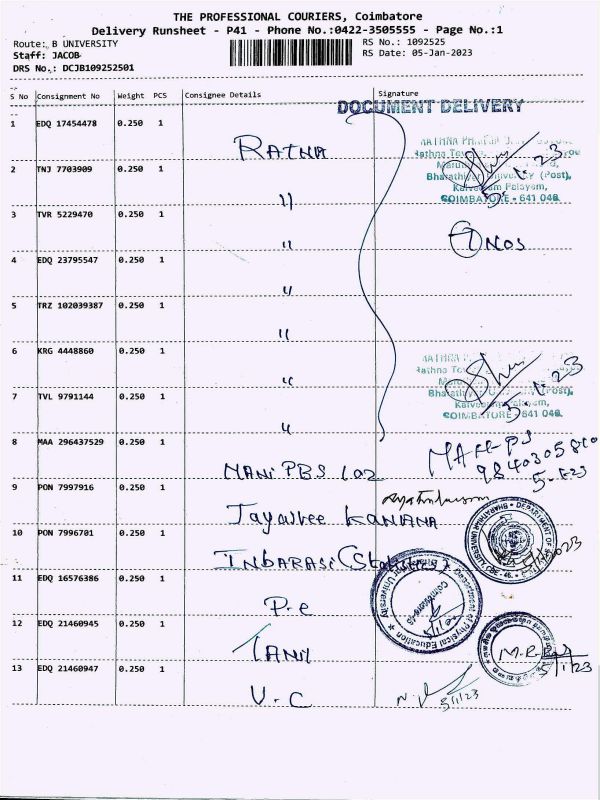 THE PROFESSIONAL COURIERS, Coimbatore
Delivery Runsheet - P41 - Phone No.:0422-3505555 - Page No.:1
Route: B UNIVERSITY
RS No.: 1092525
Staff: JACOB
RS Date: 05-Jan-2023
DRS No.: DCJB109252501
S No Consignment No Weight PCS Consignee Details Signature
DOCUMENT DELIVERY
1 EDQ 17454478 0.250 1
RATNA
2 TNJ 7703909 0.250 1
Bharathiyar University (Post),
Kalveeram Palayam,
COIMBATORE - 641 046.
5.1.23
"
3 TVR 5229470 0.250 1
"
7 NOS
4 EDQ 23795547 0.250 1
"
5 TRZ 102039387 0.250 1
"
6 KRG 4448860 0.250 1
"
7 TVL 9791144 0.250 1
Bharathiyar University (Post),
Kalveerampalayam,
COIMBATORE - 641 046.
5.1.23
"
8 MAA 296437529 0.250 1
MANI PBS 102
9840305810
9 PON 7997916 0.250 1
Jayasree KANANA
10 PON 7996701 0.250 1
INBARASI (Statistics)
DEPARTMENT OF
BHARATHIAR UNIVERSITY
11 EDQ 16576386 0.250 1
P.e
Department of Physical Education
Bharathiar University
Coimbatore-46
12 EDQ 21460945 0.250 1
TAMIL
5/1/23
13 EDQ 21460947 0.250 1
V.C
5/1/23